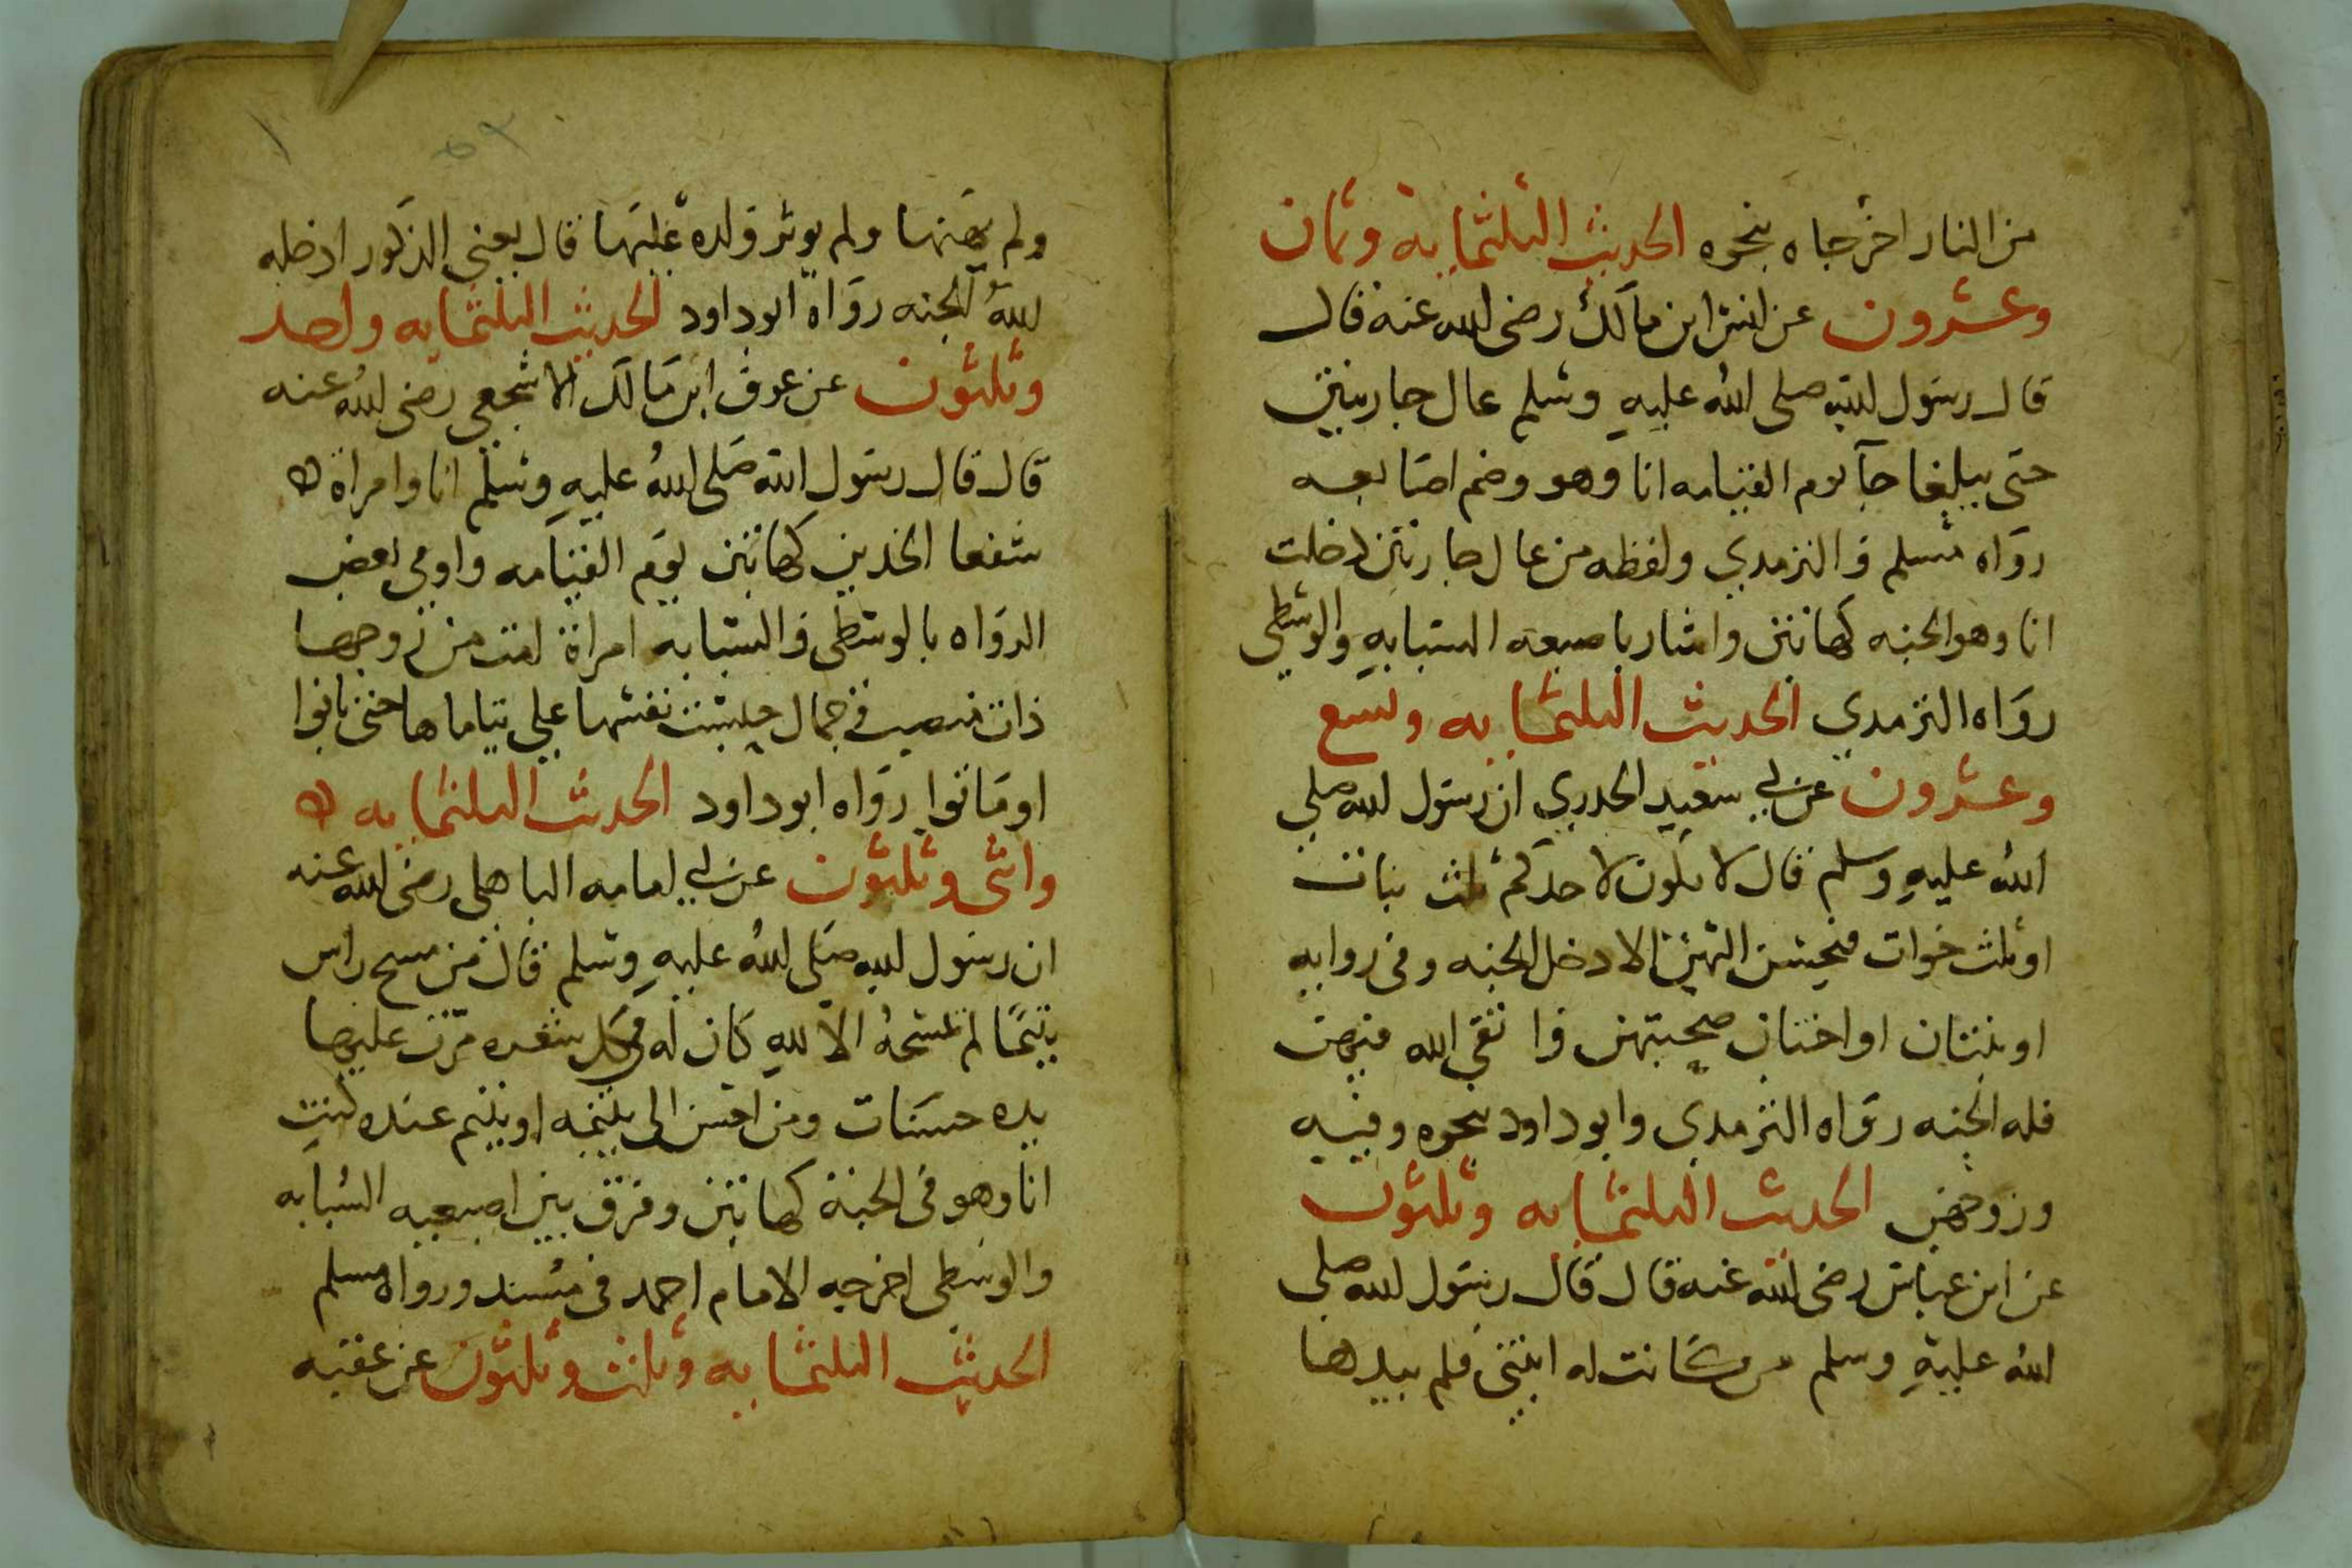 من النار اخرجاه بنحوه الحديث الثلثمايه وثمان
وعشرون عن انس ابن مالك رضى الله عنه قال
قال رسول الله صلى الله عليه وسلم من عال جاريتين
حتى يبلغا جآ يوم القيامه انا وهو وضم اصابعه
رواه مسلم والترمدي ولفظه من عال جاريتين دخلت
انا وهو الجنه كهاتين واشار باصبعه السبابه والوسطى
رواه الترمدي الحديث الثلثمايه وتسع
وعشرون عن ابي سعيد الخدري ان رسول الله صلى
الله عليه وسلم قال لا يكون لاحدكم ثلث بنات
او ثلث خوات فيحسن اليهن الا دخل الجنه وفي روايه
او بنتان او اختان صحبتهن واتقى الله فيهن
فله الجنه رواه الترمدي وابو داود بنحوه وفيه
وزوجهن الحديث الثلثمايه وثلثون
عن ابن عباس رضى الله عنه قال قال رسول الله صلى
الله عليه وسلم من كانت له ابنتى فلم يیدها
ولم يهنها ولم يوثر ولده عليها قال يعني الذكور ادخله
الله الجنه رواه ابو داود الحديث الثلثمايه واحد
وثلثون عن عوف ابن مالك الاشجعي رضى الله عنه
قال قال رسول الله صلى الله عليه وسلم انا وامراة
سفعا الخدين كهاتين يوم القيامه واومى بعض
الرواه بالوسطى والسبابه امراة امت من زوجها
ذات منصب وجمال حبست نفسها على يتاماها حتى بانوا
او ماتوا رواه ابو داود الحديث الثلثمايه
واثنى وثلثون عن ابي امامه الباهلي رضى الله عنه
ان رسول الله صلى الله عليه وسلم قال من مسح راس
يتيمًا لم يمسحه الا لله كان له في كل شعره مرت عليها
يده حسنات ومن احسن الى يتيمه او يتيم عنده كنت
انا وهو في الجنة كهاتين وفرق بين اصبعيه السبابه
والوسطى اخرجه الامام احمد في مسند ورواه مسلم
الحديث الثلثمايه وثلث وثلثون عن عقبه